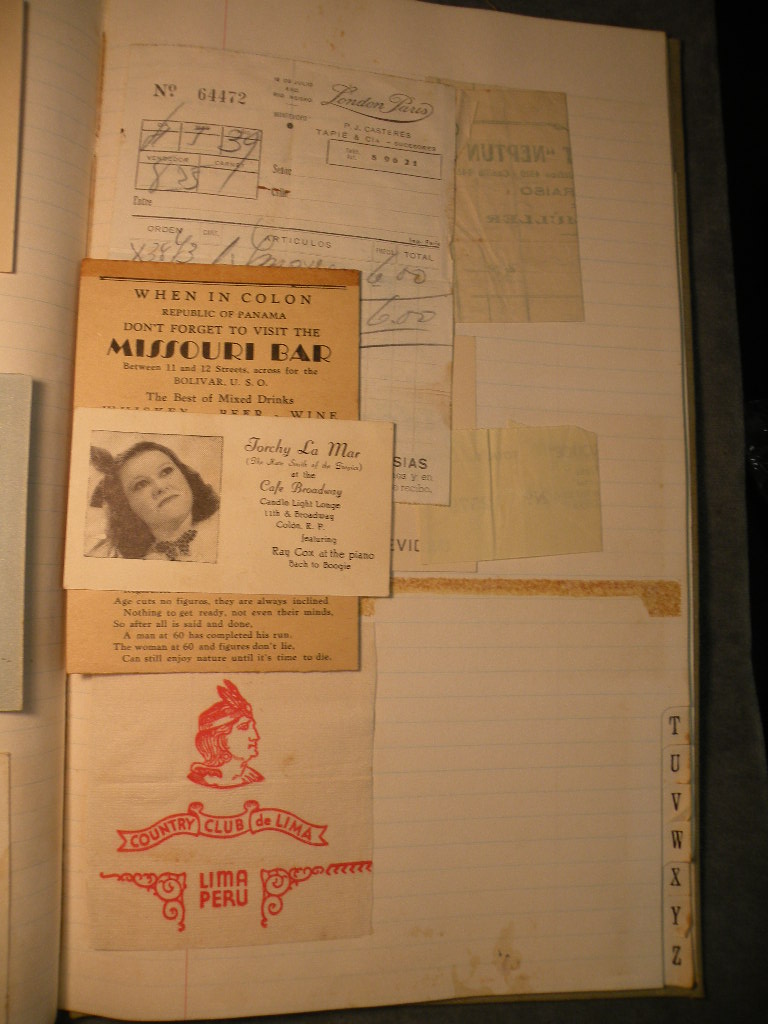 Nº 64472
London Paris
P. J. CASTERES
TAPIE & Cia - SUCESORES
8 96 21
VENDEDOR
Señor
Calle
Entre
ORDEN ARTICULOS TOTAL
6.00
6.00
T "NEPTUN
RAISO
SIAS
y en
o recibo.
EVIC
WHEN IN COLON
REPUBLIC OF PANAMA
DON'T FORGET TO VISIT THE
MISSOURI BAR
Between 11 and 12 Streets, across for the
BOLIVAR, U. S. O.
The Best of Mixed Drinks
WHISKEY - BEER - WINE
Torchy La Mar
(The Kate Smith of the Tropics)
at the
Cafe Broadway
Candle Light Lounge
11th & Broadway
Colón, R. P.
featuring
Ray Cox at the piano
Bach to Boogie
Age cuts no figures, they are always inclined
Nothing to get ready, not even their minds.
So after all is said and done,
A man at 60 has completed his run.
The woman at 60 and figures don't lie,
Can still enjoy nature until it's time to die.
COUNTRY CLUB de LIMA
LIMA
PERU
T
U
V
W
X
Y
Z